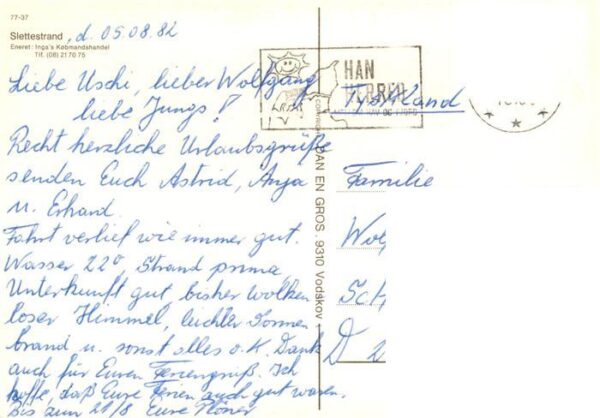 77-37
Slettestrand, d. 05.08.82
Eneret: Inga's Købmandshandel
Tlf. (08) 21 70 75
Liebe Uschi, lieber Wolfgang
liebe Jungs!
Recht herzliche Urlaubsgrüße
senden Euch Astrid, Anja
u. Erhard.
Fahrt verlief wie immer gut.
Wasser 22° Strand prima,
Unterkunft gut, bisher wolken
loser Himmel, leichter Sonnen
brand u. sonst alles o.K. Dank
auch für Euren Feriengruß. Ich
hoffe, daß Eure Ferien auch gut waren.
Bis zum 21/8 Eure
COPYRIGHT: DAN EN GROS. 9310 Vodskov
HAN
HERRED
Familie
Wol
Sch
D 2